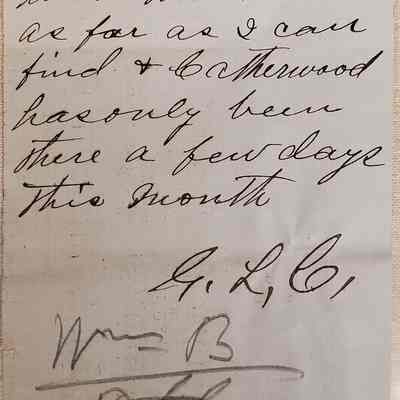 as far as I can
find & Catherwood
has only been
there a few days
this month
G. L, C,
Wm B